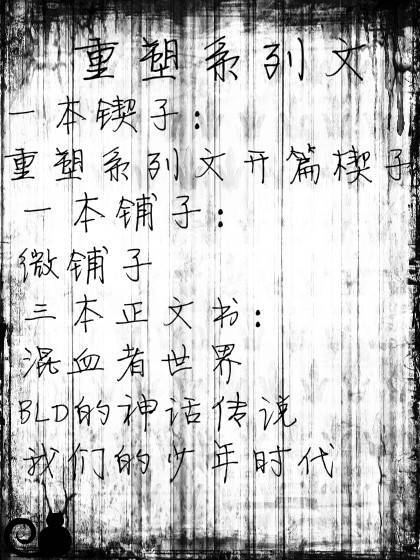 重塑系列文
一本锲子：
重塑系列文开篇楔子
一本铺子：
微铺子
三本正文书：
混血者世界
BLD的神话传说
我们的少年时代